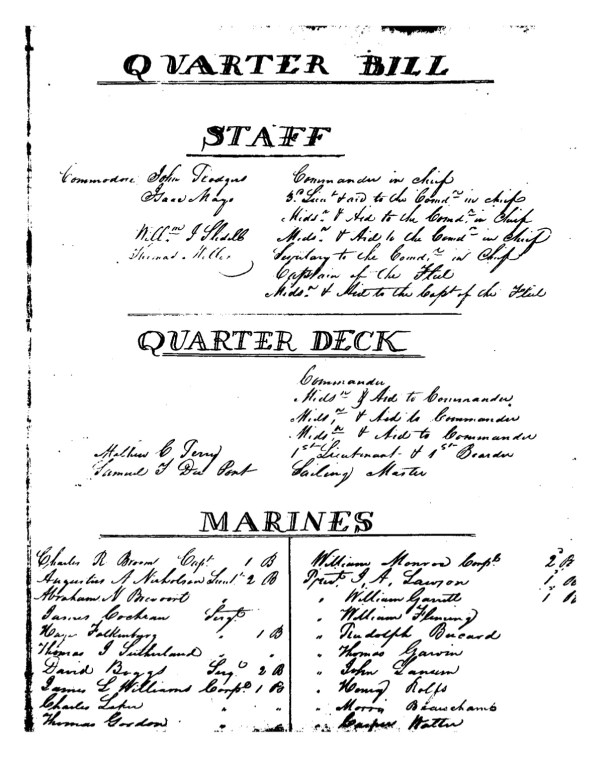 QUARTER BILL
STAFF
Commodore John Rodgers Commander in chief
Isaac Mayo 3.d Lieut & aid to the Comdr in chief
Midsn & Aid to the Comdr in Chief
Willm J Slidell Midsn & Aid to the Comdr in Chief
Thomas Miller Secretary to the Comdr in Chief
Captain of the Fleet
Midsn & Aid to the Capt of the Fleet
QUARTER DECK
Commander
Midsn & Aid to Commander
Midsn & Aid to Commander
Midsn & Aid to Commander
Mathew C Perry 1st Lieutenant & 1st Boarder
Samuel F Du Pont Sailing Master
MARINES
Charles R Broom Capt 1 B
Augustus A Nicholson Lieut 2 B
Abraham N Brevoort
James Cochran Sergt
Falkenburg " 1 B
Thomas J Sutherland "
David Boggs Sergt 2 B
James L Williams Corpl 1 B
Charles " "
Thomas Gordon " "
William Monroe Corpl 2 B
Privt J. A. Lawson 1 B
" William Garrett 1 B
" William Fleming
" Rudolph
" Thomas Garvin
" John
" Henry Rolfs
" Morris Beauchamb
" Walter